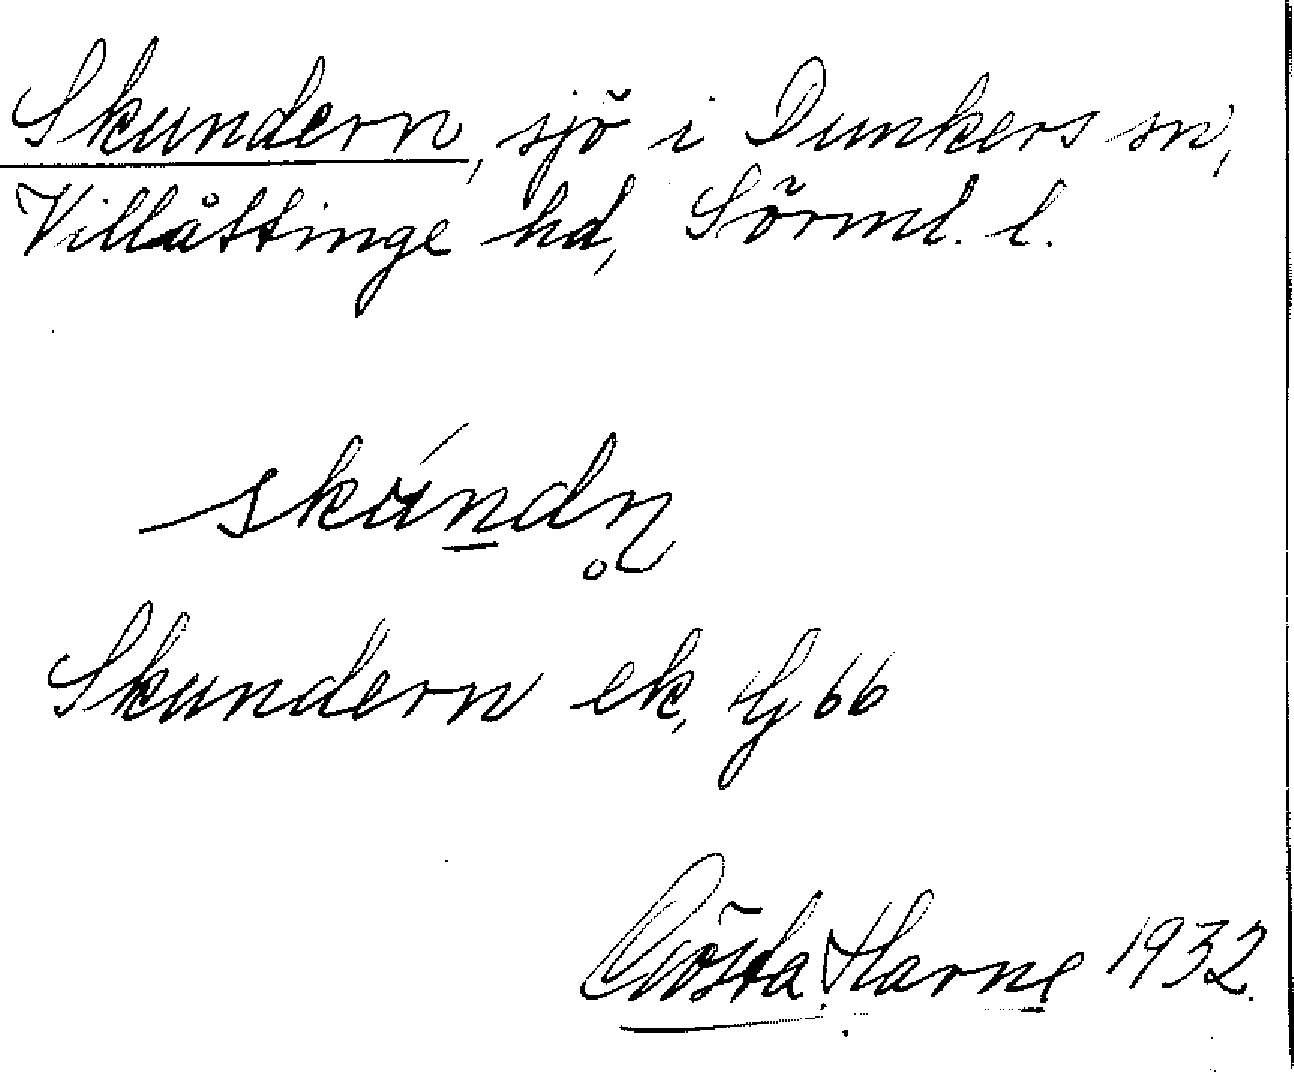 Skundern, sjö i Dunkers sn,
Villåttinge hd, Sörml. l.
skúndn̥
Skundern ek, Gj 66
Gösta Harne 1932.